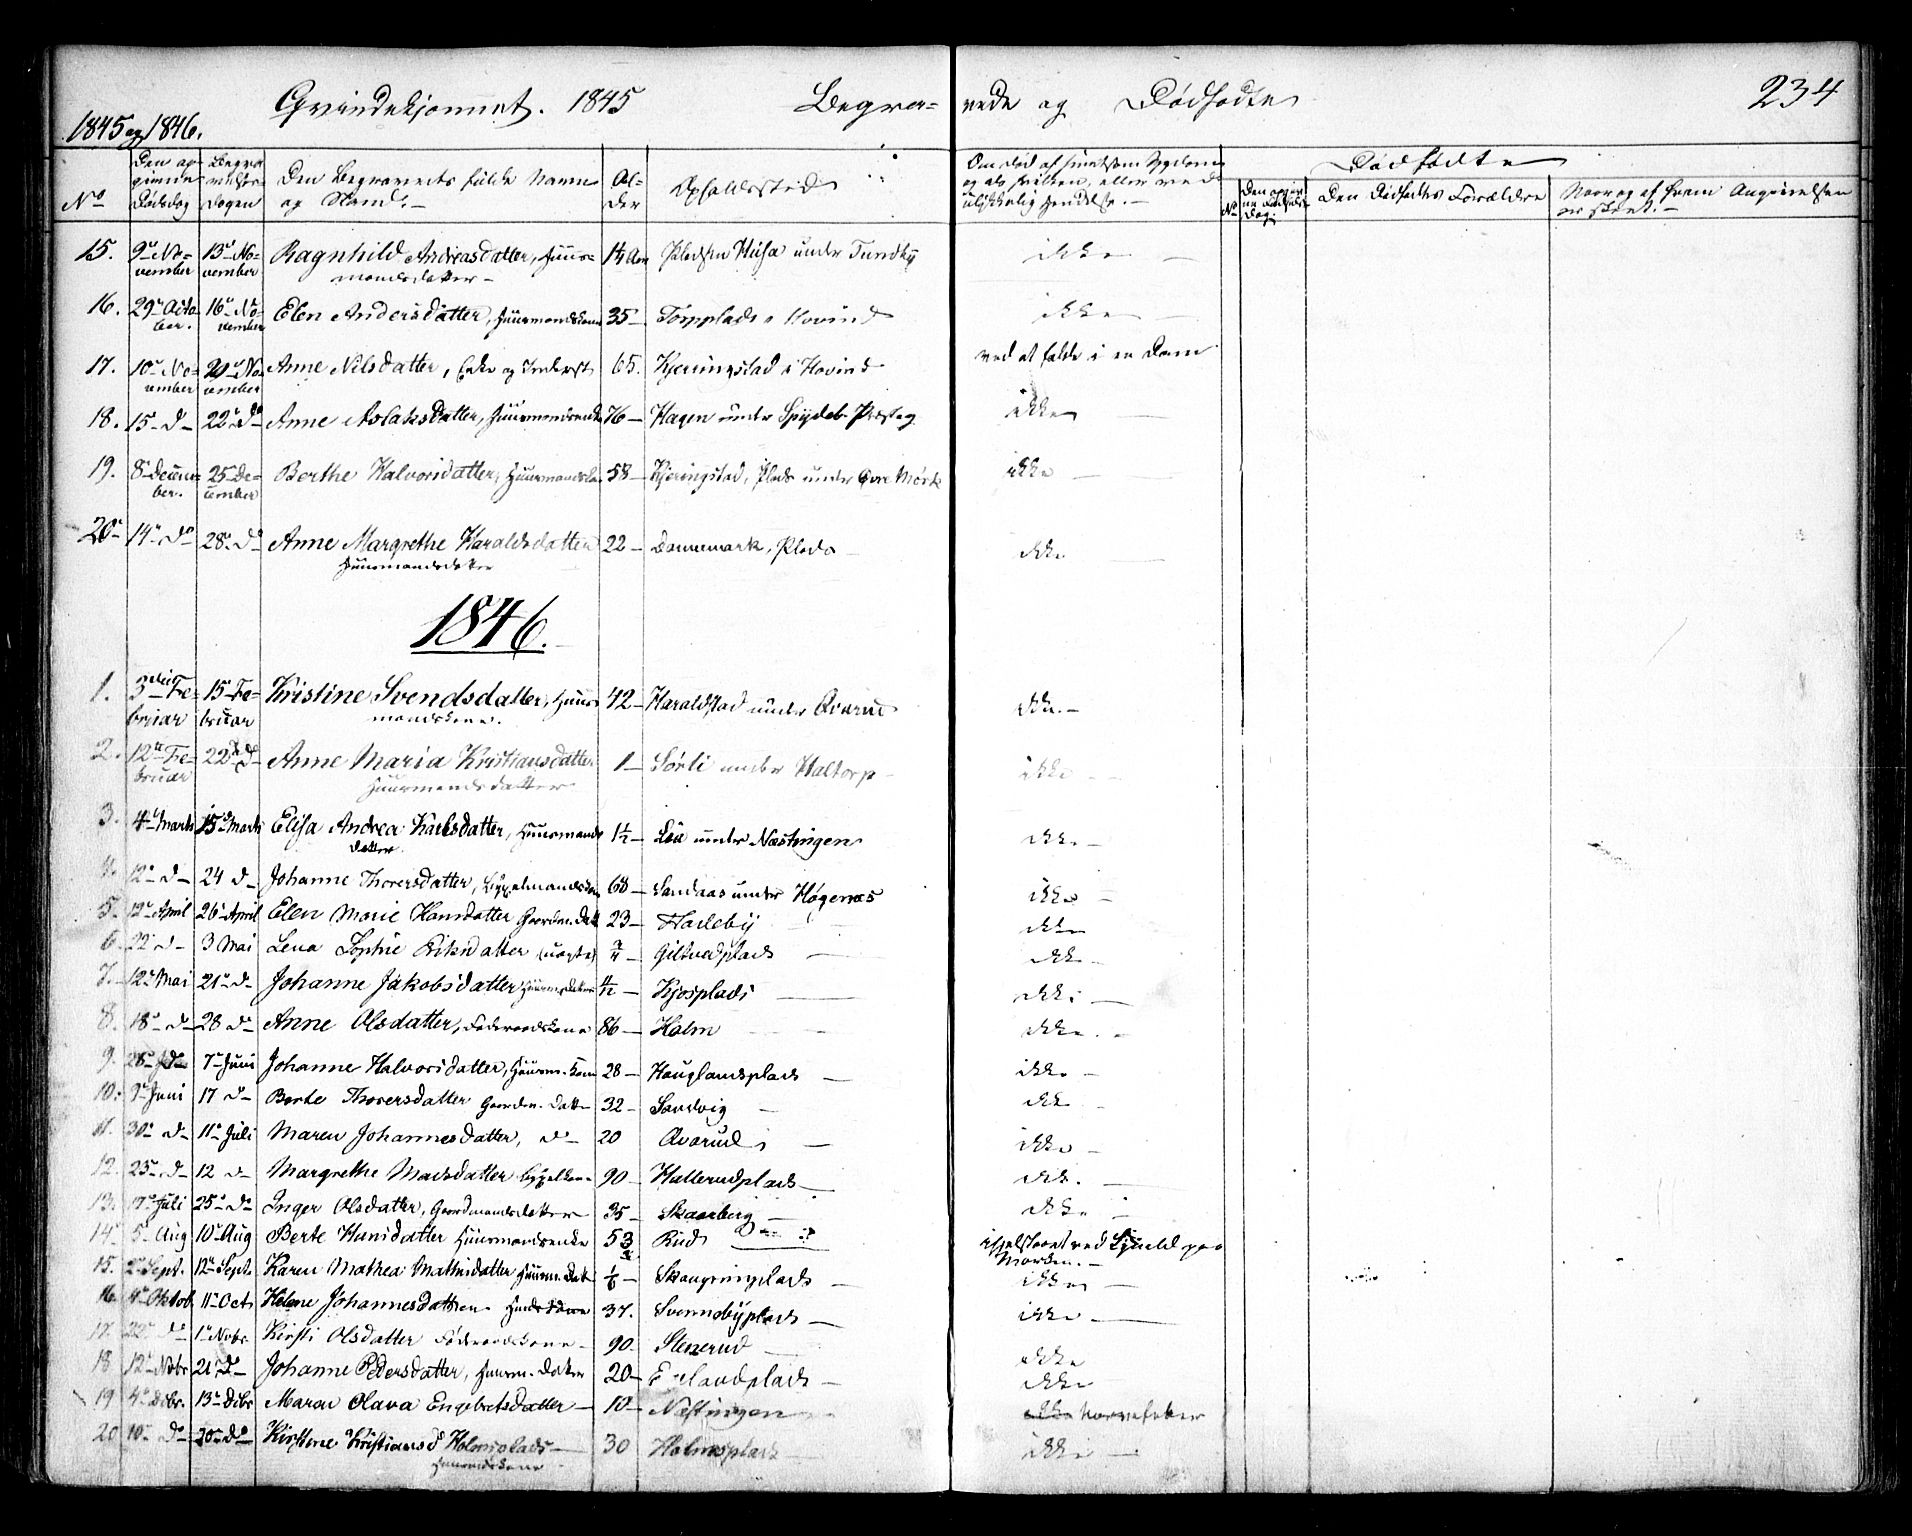 Qvindekjønnet. 1845 Begra= vede og Dødfødte 234
1845 og 1846.
No Den op- givne Dødsdag Begra- velses- Dagen Den Begravedes fulde Navne og Stand. Al- der Opholdssted Om død af smitsom Sygdom og af hvilken, eller ved ulykkelig Hændelse. Dødfødte No Den Dødfødtes Forældre Naar og af hvem Angivelsen er skeet.
15. 9de No- vember 13de No- vember Ragnhild Andreasdatter, Huus- mandsdatter 14 Aar Pladsen Husa under Tundby ikke
16. 29de Octo- ber. 16de No- vember Elen Andersdatter, Huusmandskone 35 Torpplads i Hovind ikke
17. 10de No- vember 20de No- vember Anne Nilsdatter, Enke og Inderst 65. Kjerringstad i Hovind ved at falde i en Dam
18. 15 D 22de Do Anne Aslaksdatter, Huusmandsenke 76 Hagen under Spydeb. Præsteg ikke
19. 8de Decem- ber. 25 De- cember Berthe Halvorsdatter, Huusmandsko 58 Kjeringstad, Plads under Øvre Mørk ikke
20 14de Do 28de Do Anne Margrethe Haraldsdatter Huusmandsdatter 22 Dannemark, Plads ikke
1846.
1. 3die Fe- bruar 15de Fe- bruar Kristine Svendsdatter, Huus- mandskone. 42 Haraldstad under ikke.
2. 12te Fe- bruar 22de D Anne Maria Kristiansdatter Huusmandsdatter 1 Sørli under Haltorp ikke
3. 4de Marts 15de Marts Elisa Andrea Karlsdatter, Huusmands datter. 1½ Lia under Næstingen ikke
4. 12te D 24 D Johanne Thorersdatter, 68 Sandaas under Høgenæs ikke
5. 12te April 26de April Elen Marie Hansdatter Gaardm. Datt 23 Harleby ikke
6. 22de D 3 Mai Lena Sophie Eriksdatter (uægte) Giltvedplads ikke
7. 12te Mai 21de D Johanne Jakobsdatter Huusmdatter Kjosplads ikke
8. 18de D 28 D Anne Olsdatter, Føderaadskone 86 Holm ikke.
9. 28de 7de Juni Johanne Halvorsdatter, Huusm. Kone 28 Hauglandsplads ikke
10. 9de Juni 17 D Berte Thorersdatter Gaardm. Datter 32 Sandvig ikke
11. 30te D 11te Juli Maren Johannesdatter, D 20 Qvarud ikke
12. 23de D 12 D Margrethe Madsdatter 90 Hallerudplads ikke.
13. 17de Juli 25de D Inger Olsdatter, Gaardmandsdatter 35 Skaarberg ikke
14 5te Aug 10de Aug Berte Hansdatter Huusmandsenke 53 Rud ihjelslaaet ved Lynild paa Marken.
15. 2de Sept. 12te Sept. Karen Mathea Mathisdatter Huusm. Datt Skaugringplads ikke
16. 4de Oktob 11te Oct Helene Johannesdatter 37. Svennebyplads ikke
17. 22de D 1te Novbr. Kirsti Olsdatter Føderaadskone 90. Stenerud
18 12te Novbr 21 D Johanne Pedersdatter, Huusm. Datter 20 ikke
19 4de Dcbr. 13de Dcbr Maren Olava Engebretsdatter 10 Næstingen ikke Nervefeber
20 10de D 20de D Kirstine Kristiansd Holmsplads Huusmdskone 30 Holmsplads ikke